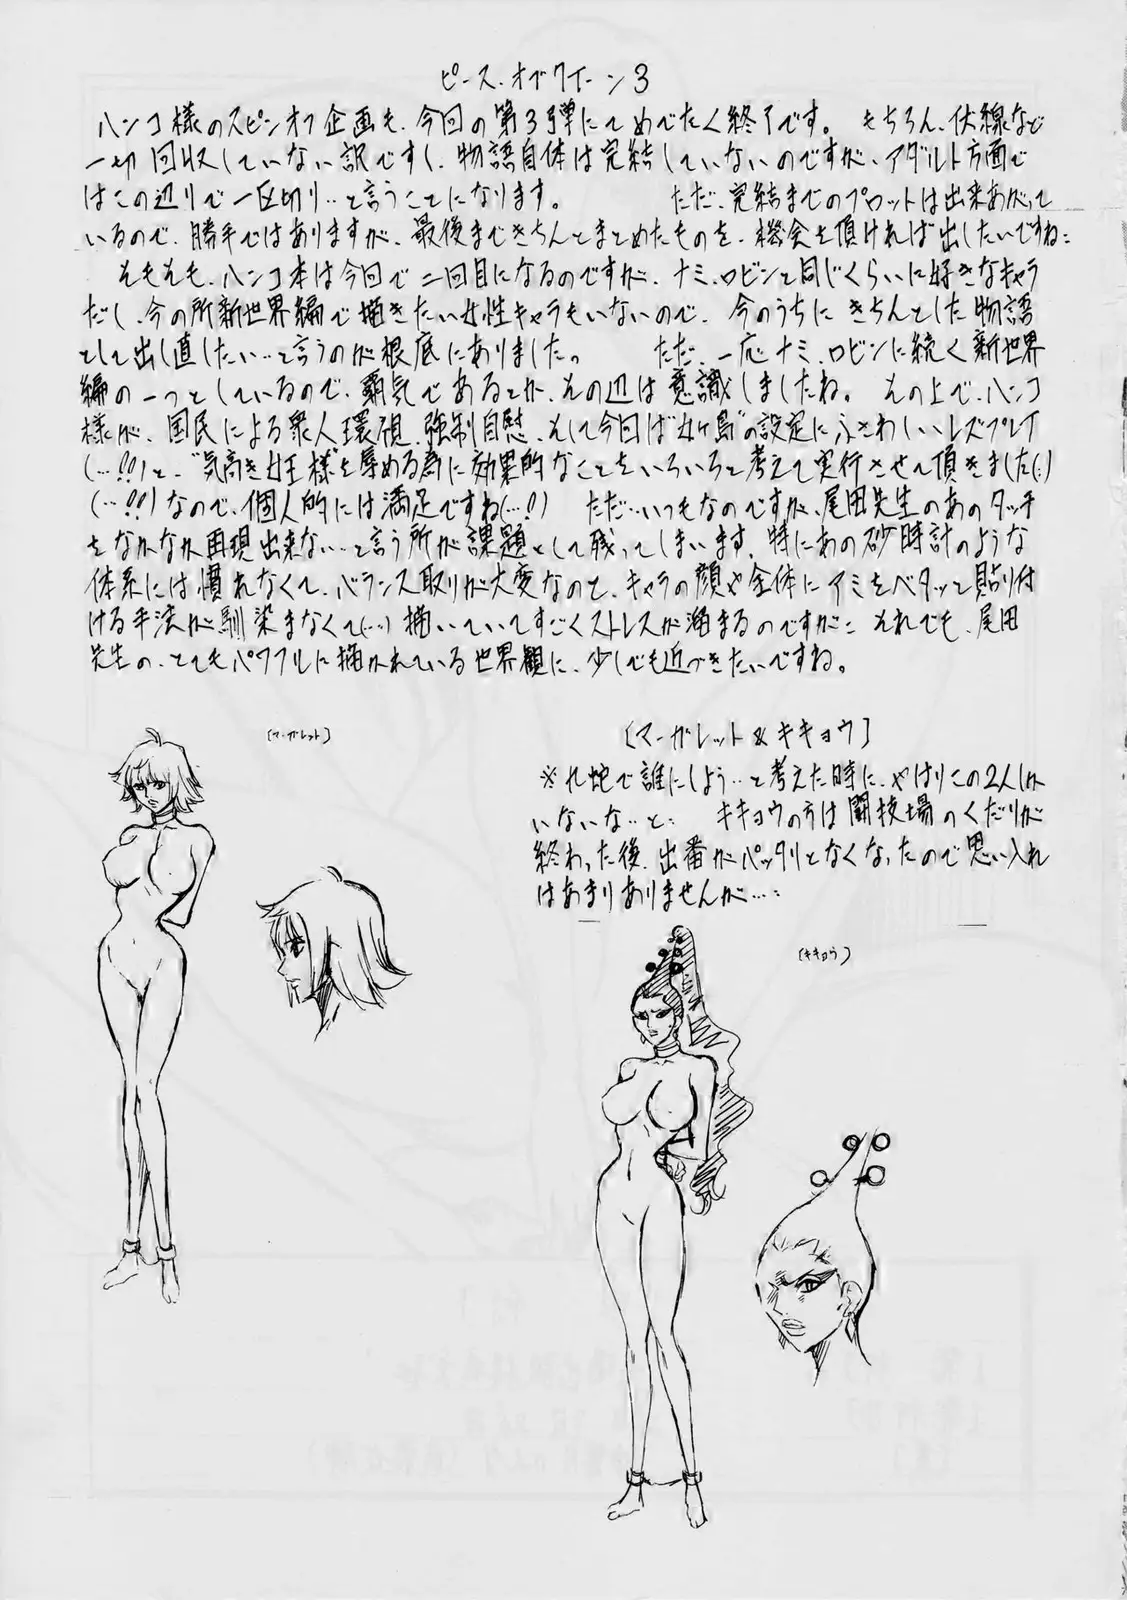 ピース・オブクイーン3
ハンコ様のスピンオフ企画も、今回の第3弾にてめでたく終了です。 もちろん、伏線など
一切回収していない訳ですし、物語自体は完結していないのですが、アダルト方面で
はこの辺りで一区切り…と言うことになります。 ただ、完結までのプロットは出来あがって
いるので、勝手ではありますが、最後まできちんとまとめたものを、機会を頂ければ出したいですね…
そもそも、ハンコ本は今回で二回目になるのですが、ナミ、ロビンと同じくらいに好きなキャラ
だし、今の所新世界編で描きたい女性キャラもいないので、今のうちにきちんとした物語
として出し直したい…と言うのが根底にありました。 ただ、一応ナミ、ロビンに続く新世界
編の一つとしているので、覇気であるとか、その辺は意識しましたね。 その上で、ハンコ
様が、国民による衆人環視、強制自慰、そして今回は“女ヶ島”の設定にふさわしいレズプレイ
(…!!)と、“気高き女王様”を辱める為に効果的なことをいろいろと考えて実行させて頂きました(…)
(…!!)なので、個人的には満足ですね(…!) ただ…いつもなのですが、尾田先生のあのタッチ
をなかなか再現出来ない…と言う所が課題として残ってしまいます。特にあの砂時計のような
体系には慣れなくて、バランス取りが大変なのと、キャラの顔や全体にアミをベタッと貼り付
ける手法が馴染まなくて(…)描いていてすごくストレスが溜まるのですが… それでも、尾田
先生の、とてもパワフルに描かれている世界観に、少しでも近づきたいですね。
[マーガレット]
[マーガレット&キキョウ]
※九蛇で誰にしよう…と考えた時に、やはりこの2人しか
いないな…と… キキョウの方は闘技場のくだりが
終わった後、出番がパッタリとなくなったので思い入れ
はあまりありませんが…
[キキョウ]